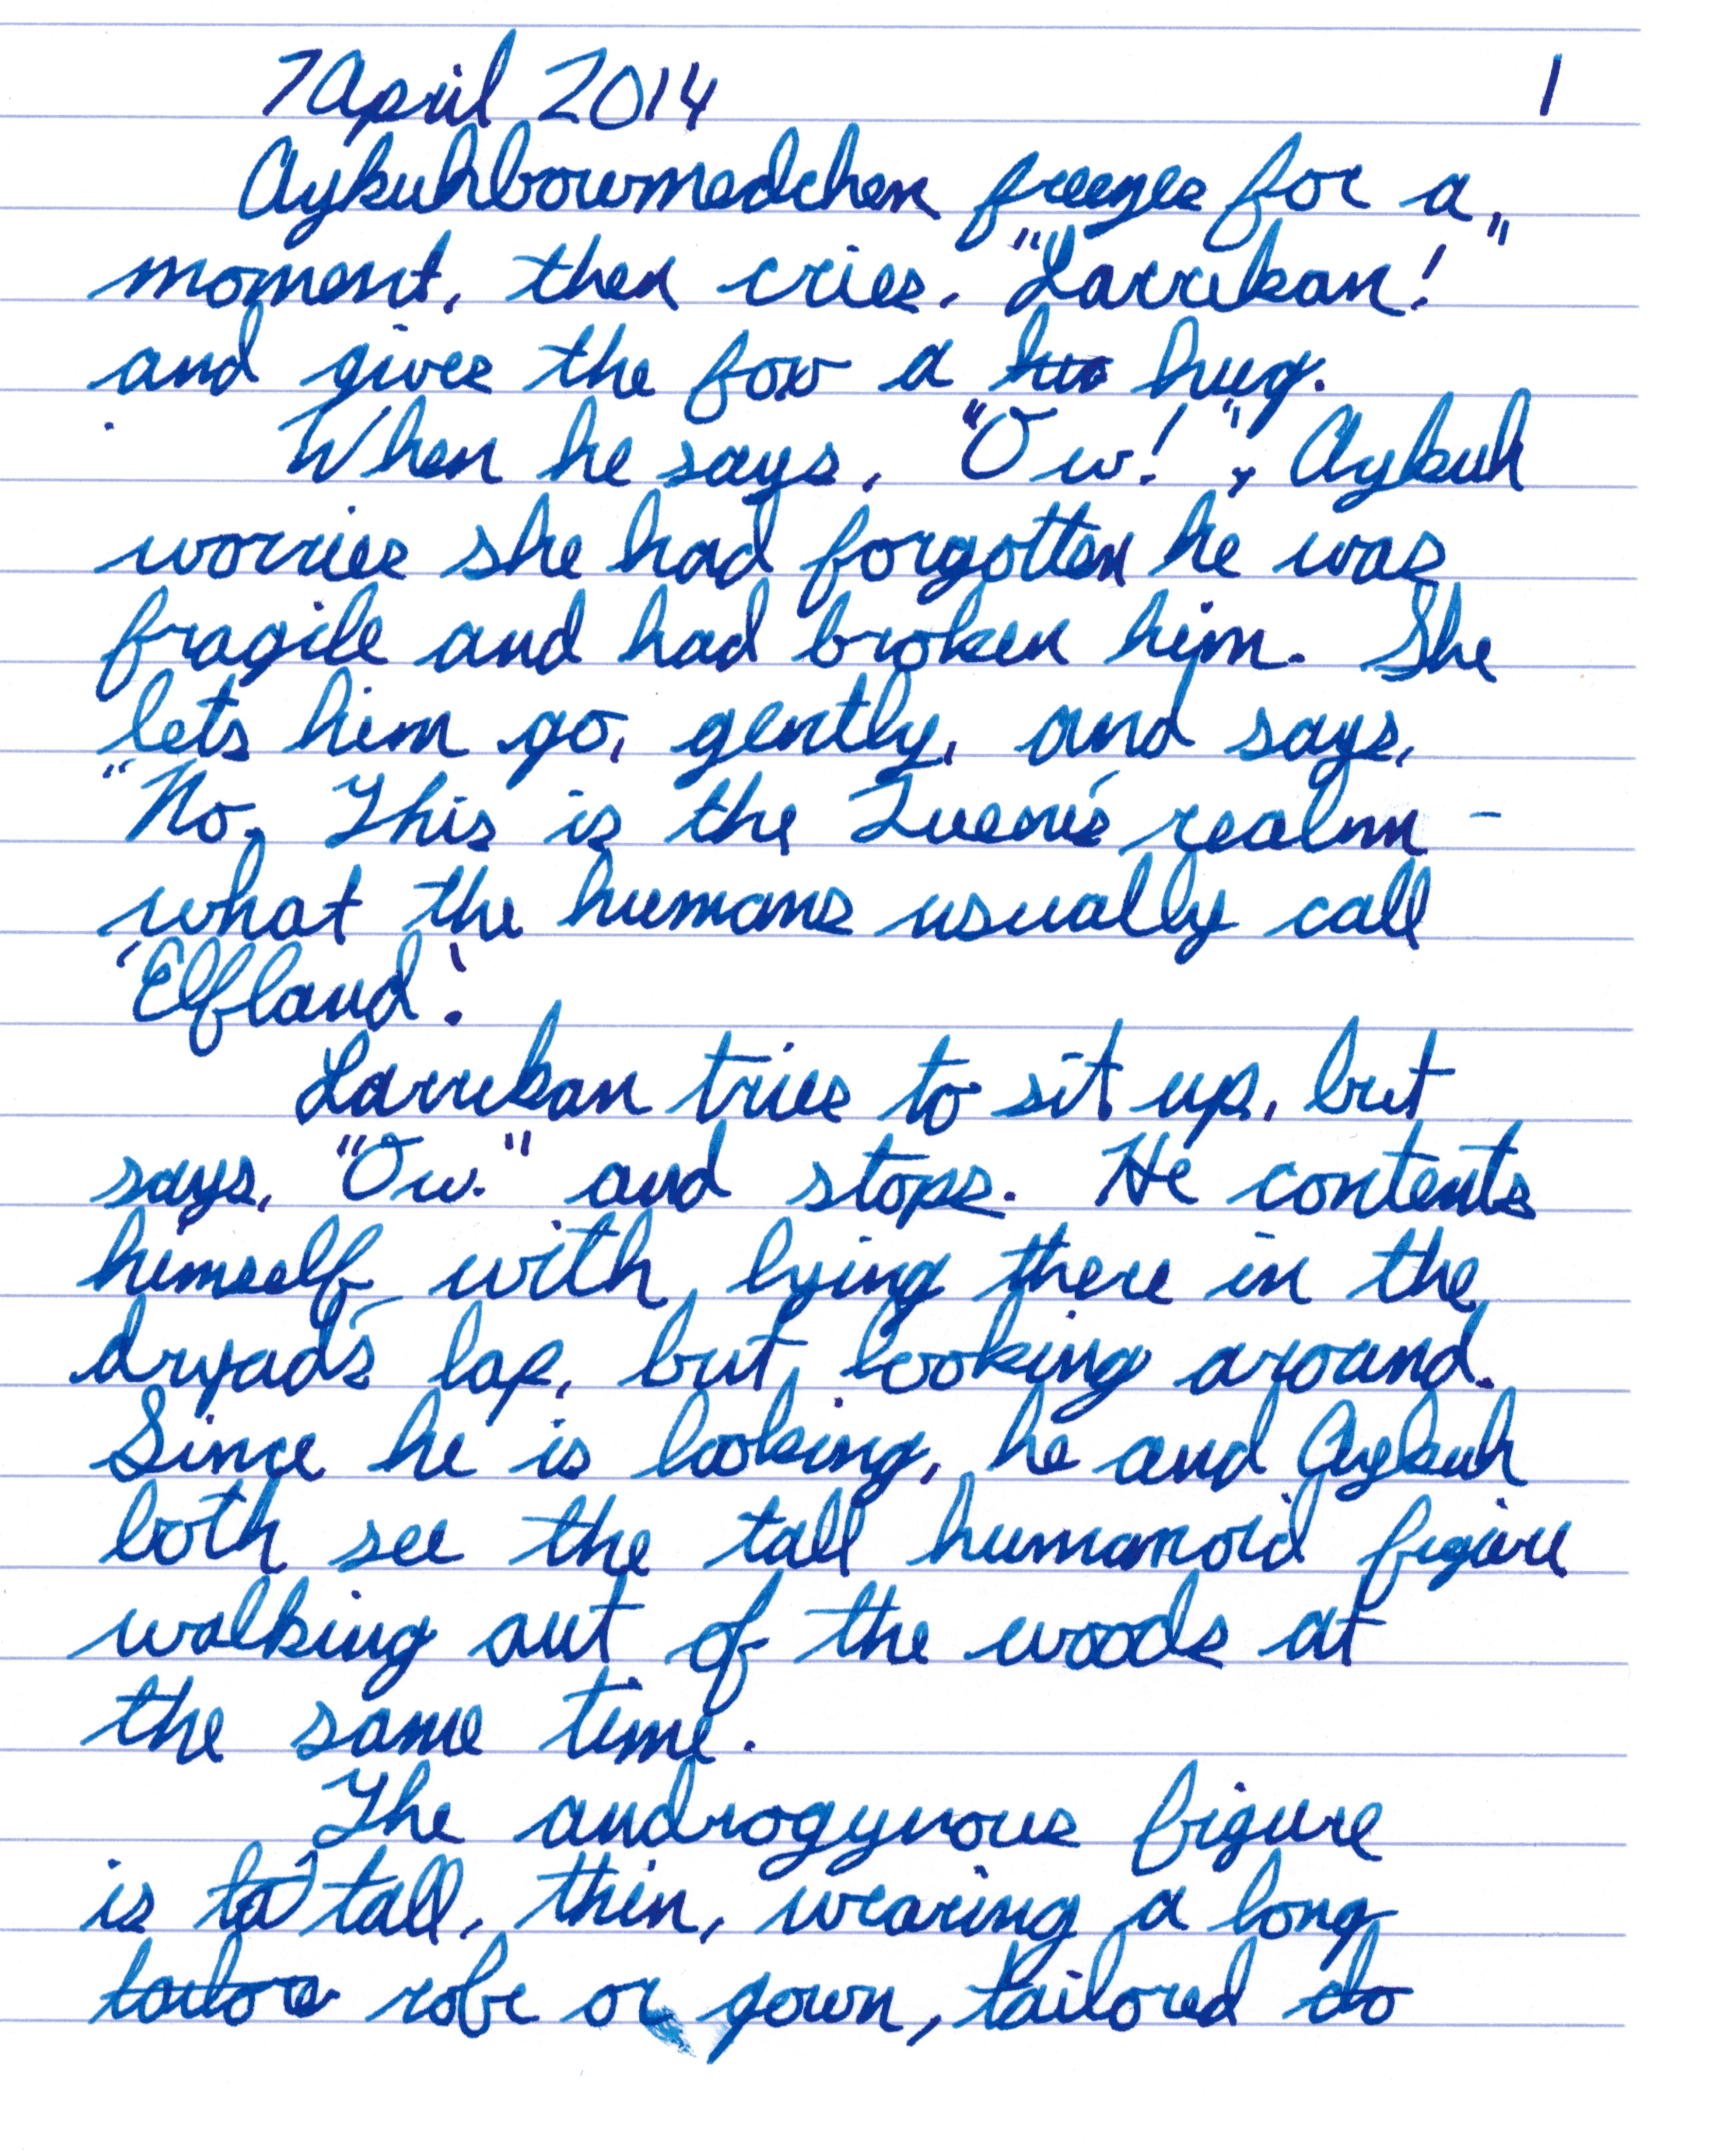 7 April 2014 1
Aykuhbowmedchen freezes for a
moment, then cries, "Larrekan!"
and gives the fox a hug.
When he says, "Ow!", Aykuh
worries she had forgotten he was
fragile and had broken him. She
lets him go, gently, and says,
"No. This is the Queen's realm –
what the humans usually call
'Elfland'.
Larrekan tries to sit up, but
says, "Ow." and stops. He contents
himself with lying there in the
dryad's lap, but looking around.
Since he is looking, he and Aykuh
both see the tall humanoid figure
walking out of the woods at
the same time.
The androgynous figure
is ta tall, thin, wearing a long
robe or gown, tailored do